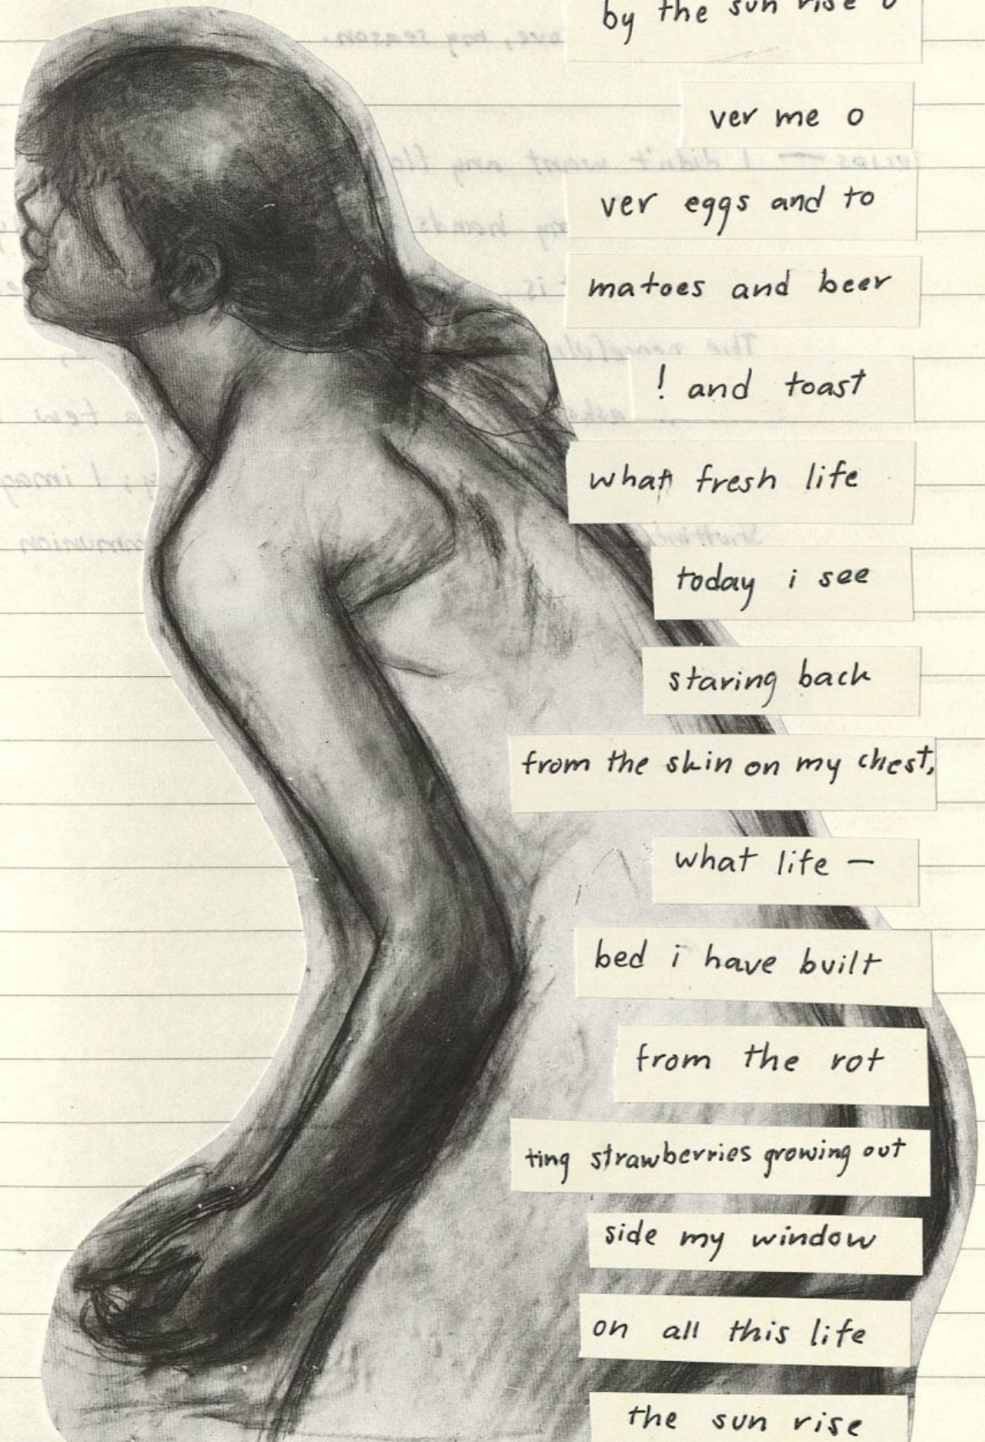 by the sun rise o
ver me o
ver eggs and to
matoes and beer
! and toast
what fresh life
today i see
staring back
from the skin on my chest,
what life —
bed i have built
from the rot
ting strawberries growing out
side my window
on all this life
the sun rise